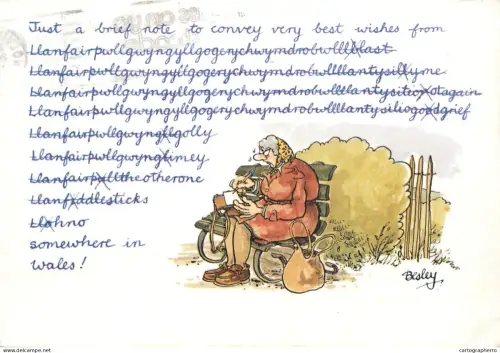 Just a brief note to convey very best wishes from
Llanfairpwllgwyngyllgogerychwymdrobwlllblast
Llanfairpwllgwyngyllgogerychwymdrobwlllantysillyme
Llanfairpwllgwyngyllgogerychwymdrobwllllantysilioxotagain
Llanfairpwllgwyngyllgogerychwymdrobwllllantysiliogoodgrief
Llanfairpwllgwyngllgolly
Llanfairpwllgwyngbimey
Llanfairpalltheotherone
Llanfiddlesticks
Llohno
somewhere in
Wales!
Besley